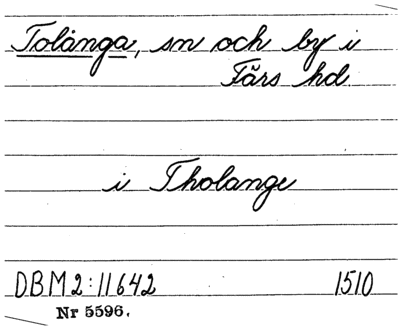 Tolånga, sn och by i
Färs hd.
i Tholange
DBM2:11642 1510
Nr 5596.